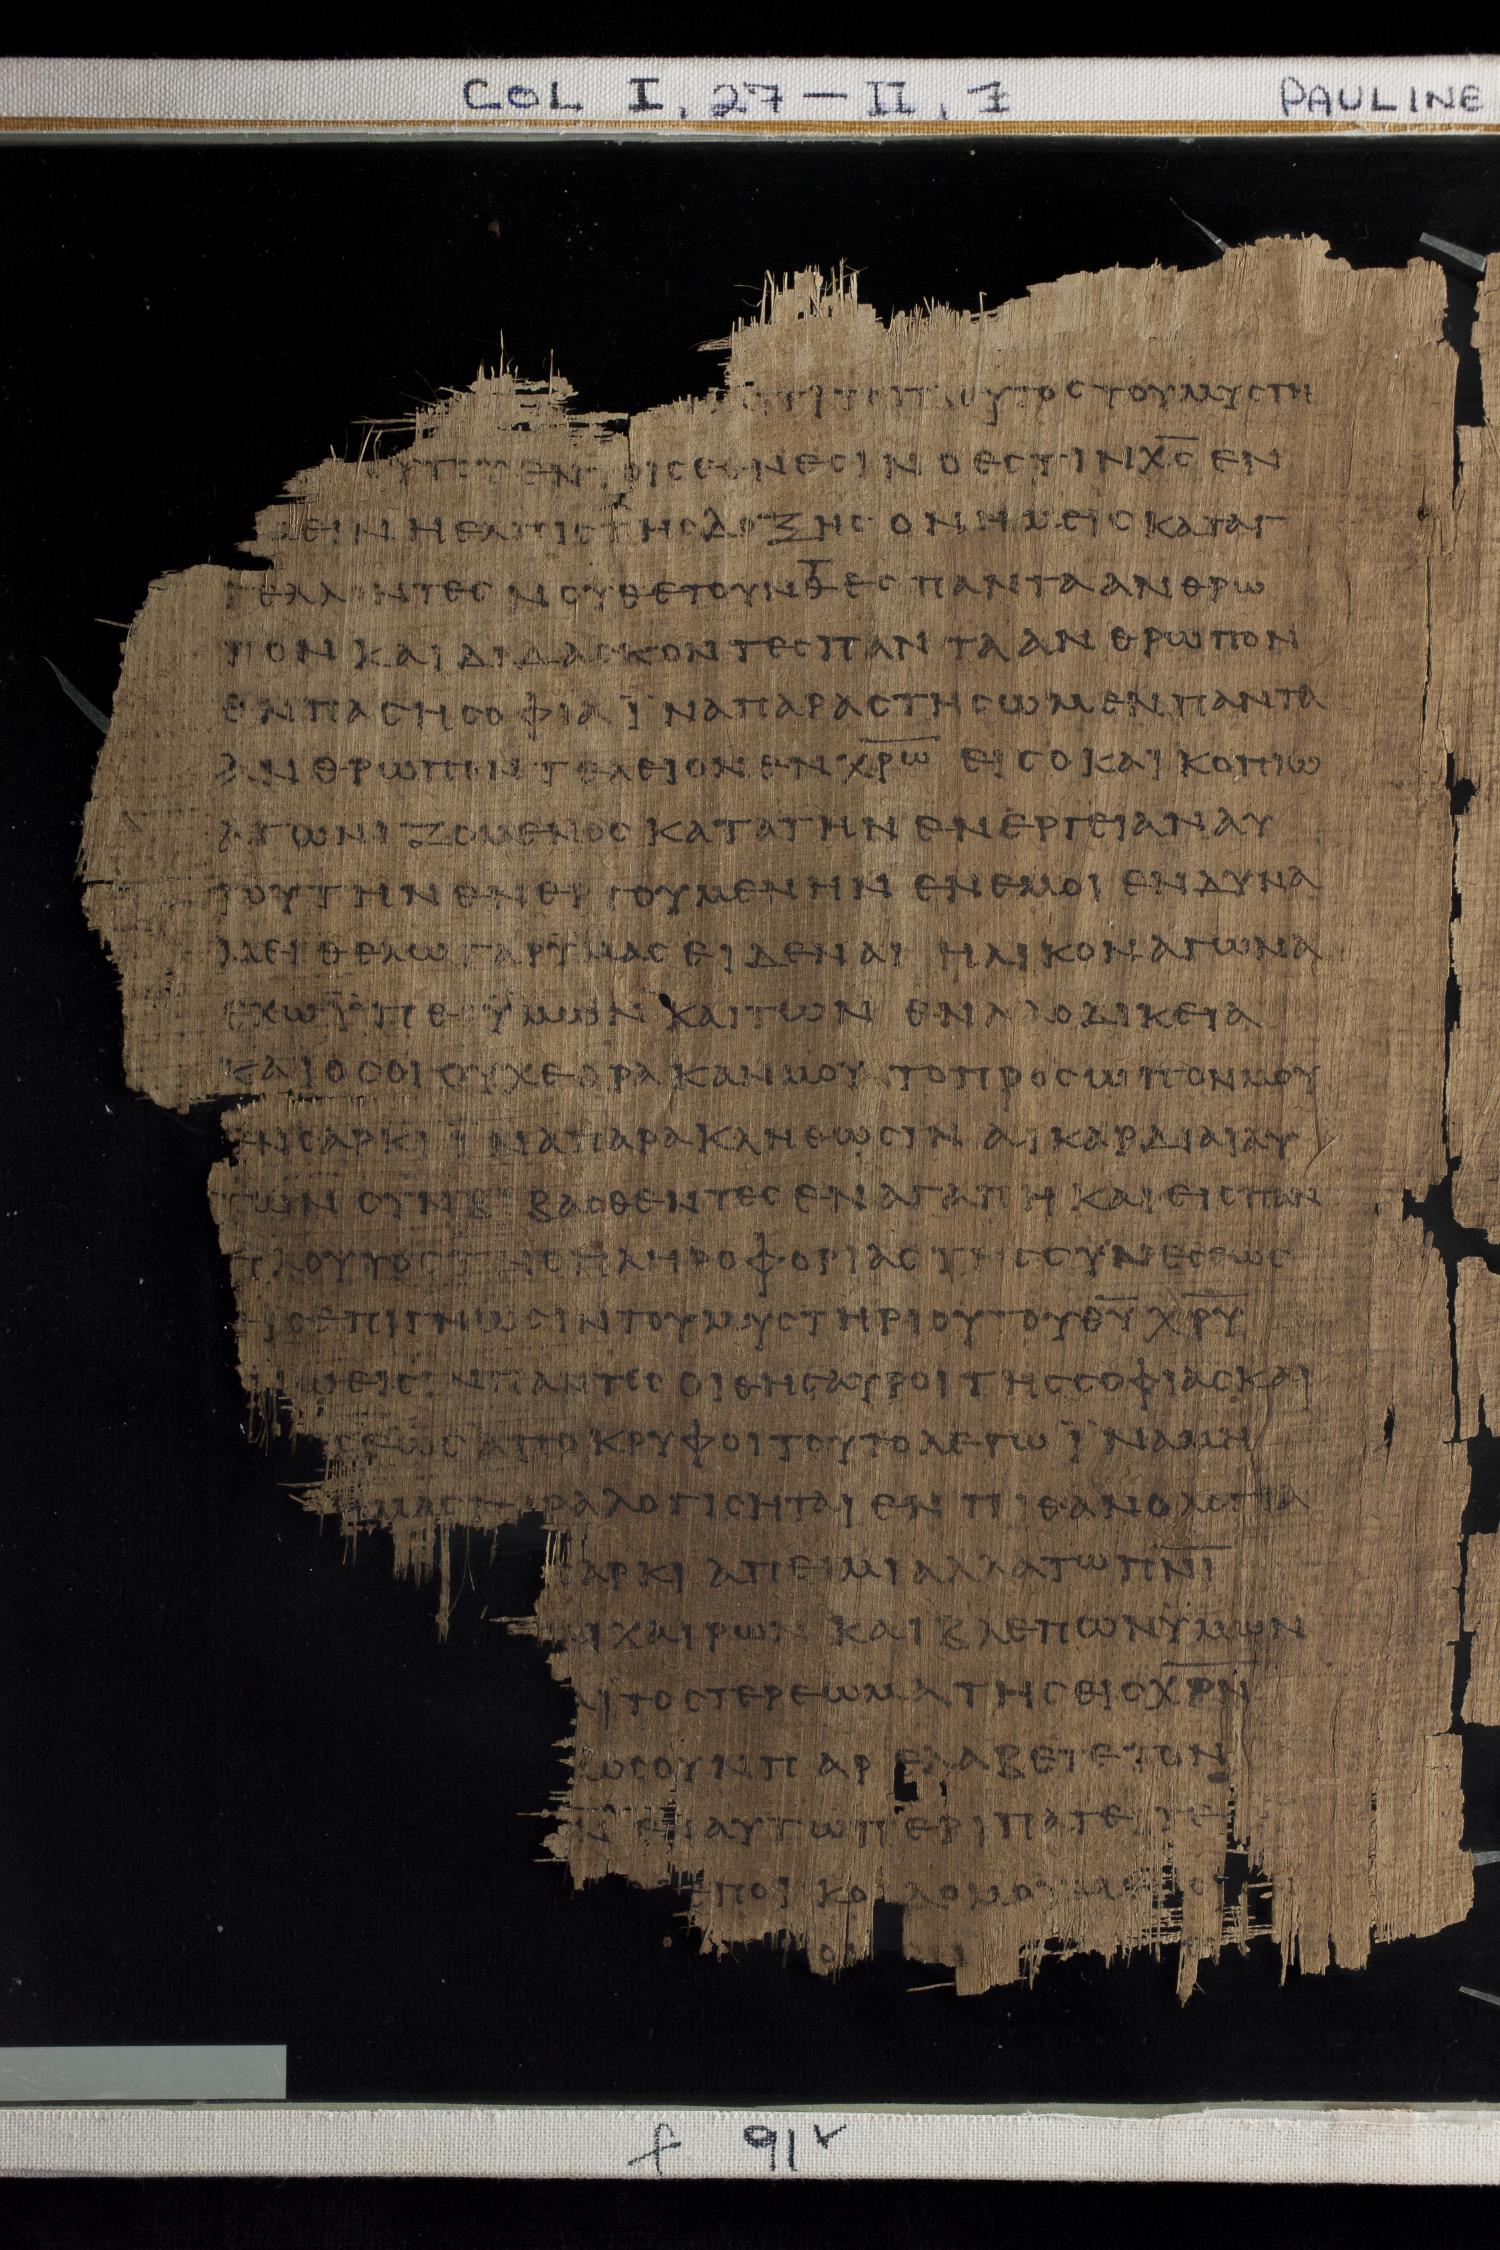 COL I, 27 – II, 7 PAULINE
τι το πλουτος του μυστη
τουτου εν τοις εθνεσιν ο εστιν χ̅ς̅ εν
υμειν η ελπις της δοξης ον ημεις καταγ
γελλοντες νουθετουντες παντα ανθρω
πον και διδασκοντες παντα ανθρωπον
εν παση σοφια ϊνα παραστησωμεν παντα
ανθρωπον τελειον εν χ̅ρ̅ω̅ εις ο και κοπιω
αγωνιζομενος κατα την ενεργειαν αυ
του την ενεργουμενην εν εμοι εν δυνα
μει θελω γαρ ϋμας ειδεναι ηλικον αγωνα
εχω ϋπερ ϋμων και των εν λαοδικεια
και οσοι ουχ εορακαν μου το προσωπον μου
εν σαρκι ϊνα παρακληθωσιν αι καρδιαι αυ
των συνβιβασθεντες εν αγαπη και εις παν
πλουτος της πληροφοριας της συνεσεως
εις επιγνωσιν του μυστηριου του θ̅υ̅ χ̅ρ̅υ̅
εισιν παντες οι θησαυροι της σοφιας και
σεως αποκρυφοι τουτο λεγω ϊνα μη
υμας παραλογισηται εν πιθανολογια
σαρκι απειμι αλλα τω π̅ν̅ι̅
χαιρων και βλεπων ϋμων
και το στερεωμα της εις χ̅ρ̅ν̅
ως ουν παρελαβετε τον
εν αυτω περιπατειτε
εποικοδομουμενοι
f 91v